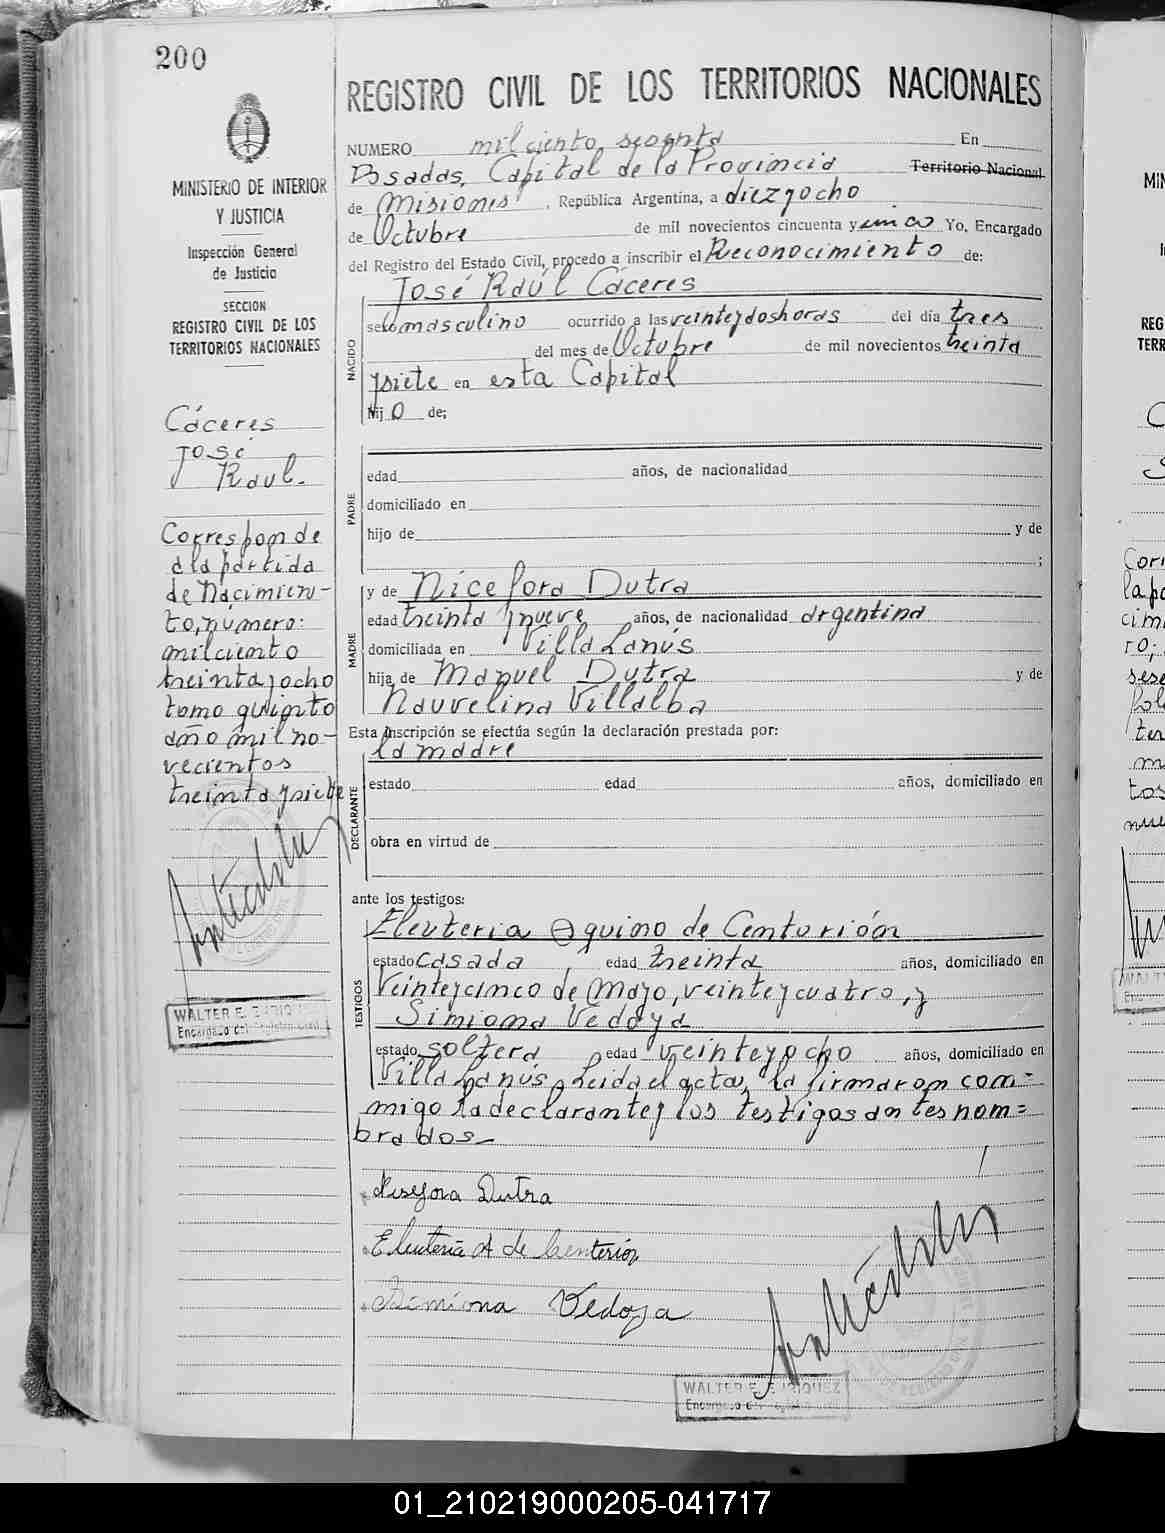 200
MINISTERIO DE INTERIOR
Y JUSTICIA
Inspección General
de Justicia
SECCION
REGISTRO CIVIL DE LOS
TERRITORIOS NACIONALES
Cáceres
José
Raul.
Corresponde
a la partida
de Nacimien-
to, número:
mil ciento
treinta y ocho
tomo quinto
año mil no-
vecientos
treinta y siete
WALTER E. ENRIQUEZ
Encargado del Registro Civil
REGISTRO CIVIL DE LOS TERRITORIOS NACIONALES
NUMERO mil ciento sesenta En
Posadas, Capital de la Provincia Territorio Nacional
de Misiones, República Argentina, a diez y ocho
de Octubre de mil novecientos cincuenta y uno Yo, Encargado
del Registro del Estado Civil, procedo a inscribir el Reconocimiento de:
José Raúl Cáceres
NACIDO
sexo masculino ocurrido a las veinte y dos horas del día tres
del mes de Octubre de mil novecientos treinta
y siete en esta Capital
hijo de;
PADRE
edad años, de nacionalidad
domiciliado en
hijo de y de
;
MADRE
y de Nicefora Dutra
edad treinta y nueve años, de nacionalidad argentina
domiciliada en Villa Lanús
hija de Manuel Dutra y de
Nauvelina Villalba
Esta inscripción se efectúa según la declaración prestada por:
la madre
DECLARANTE
estado edad años, domiciliado en
obra en virtud de
ante los testigos:
TESTIGOS
Eleuteria Aquino de Centurión
estado casada edad treinta años, domiciliado en
Veinte y cinco de Mayo, veinte y cuatro, y
Simiona Vedoya
estado soltera edad veinte y ocho años, domiciliado en
Villa Lanús. Leida el acta, la firmaron con=
migo la declarante y los testigos antes nom=
brados.-
Nisefora Dutra
Eleuteria A de Centurión
Simiona Vedoya
WALTER E. ENRIQUEZ
Encargado del Registro Civil
01_210219000205-041717